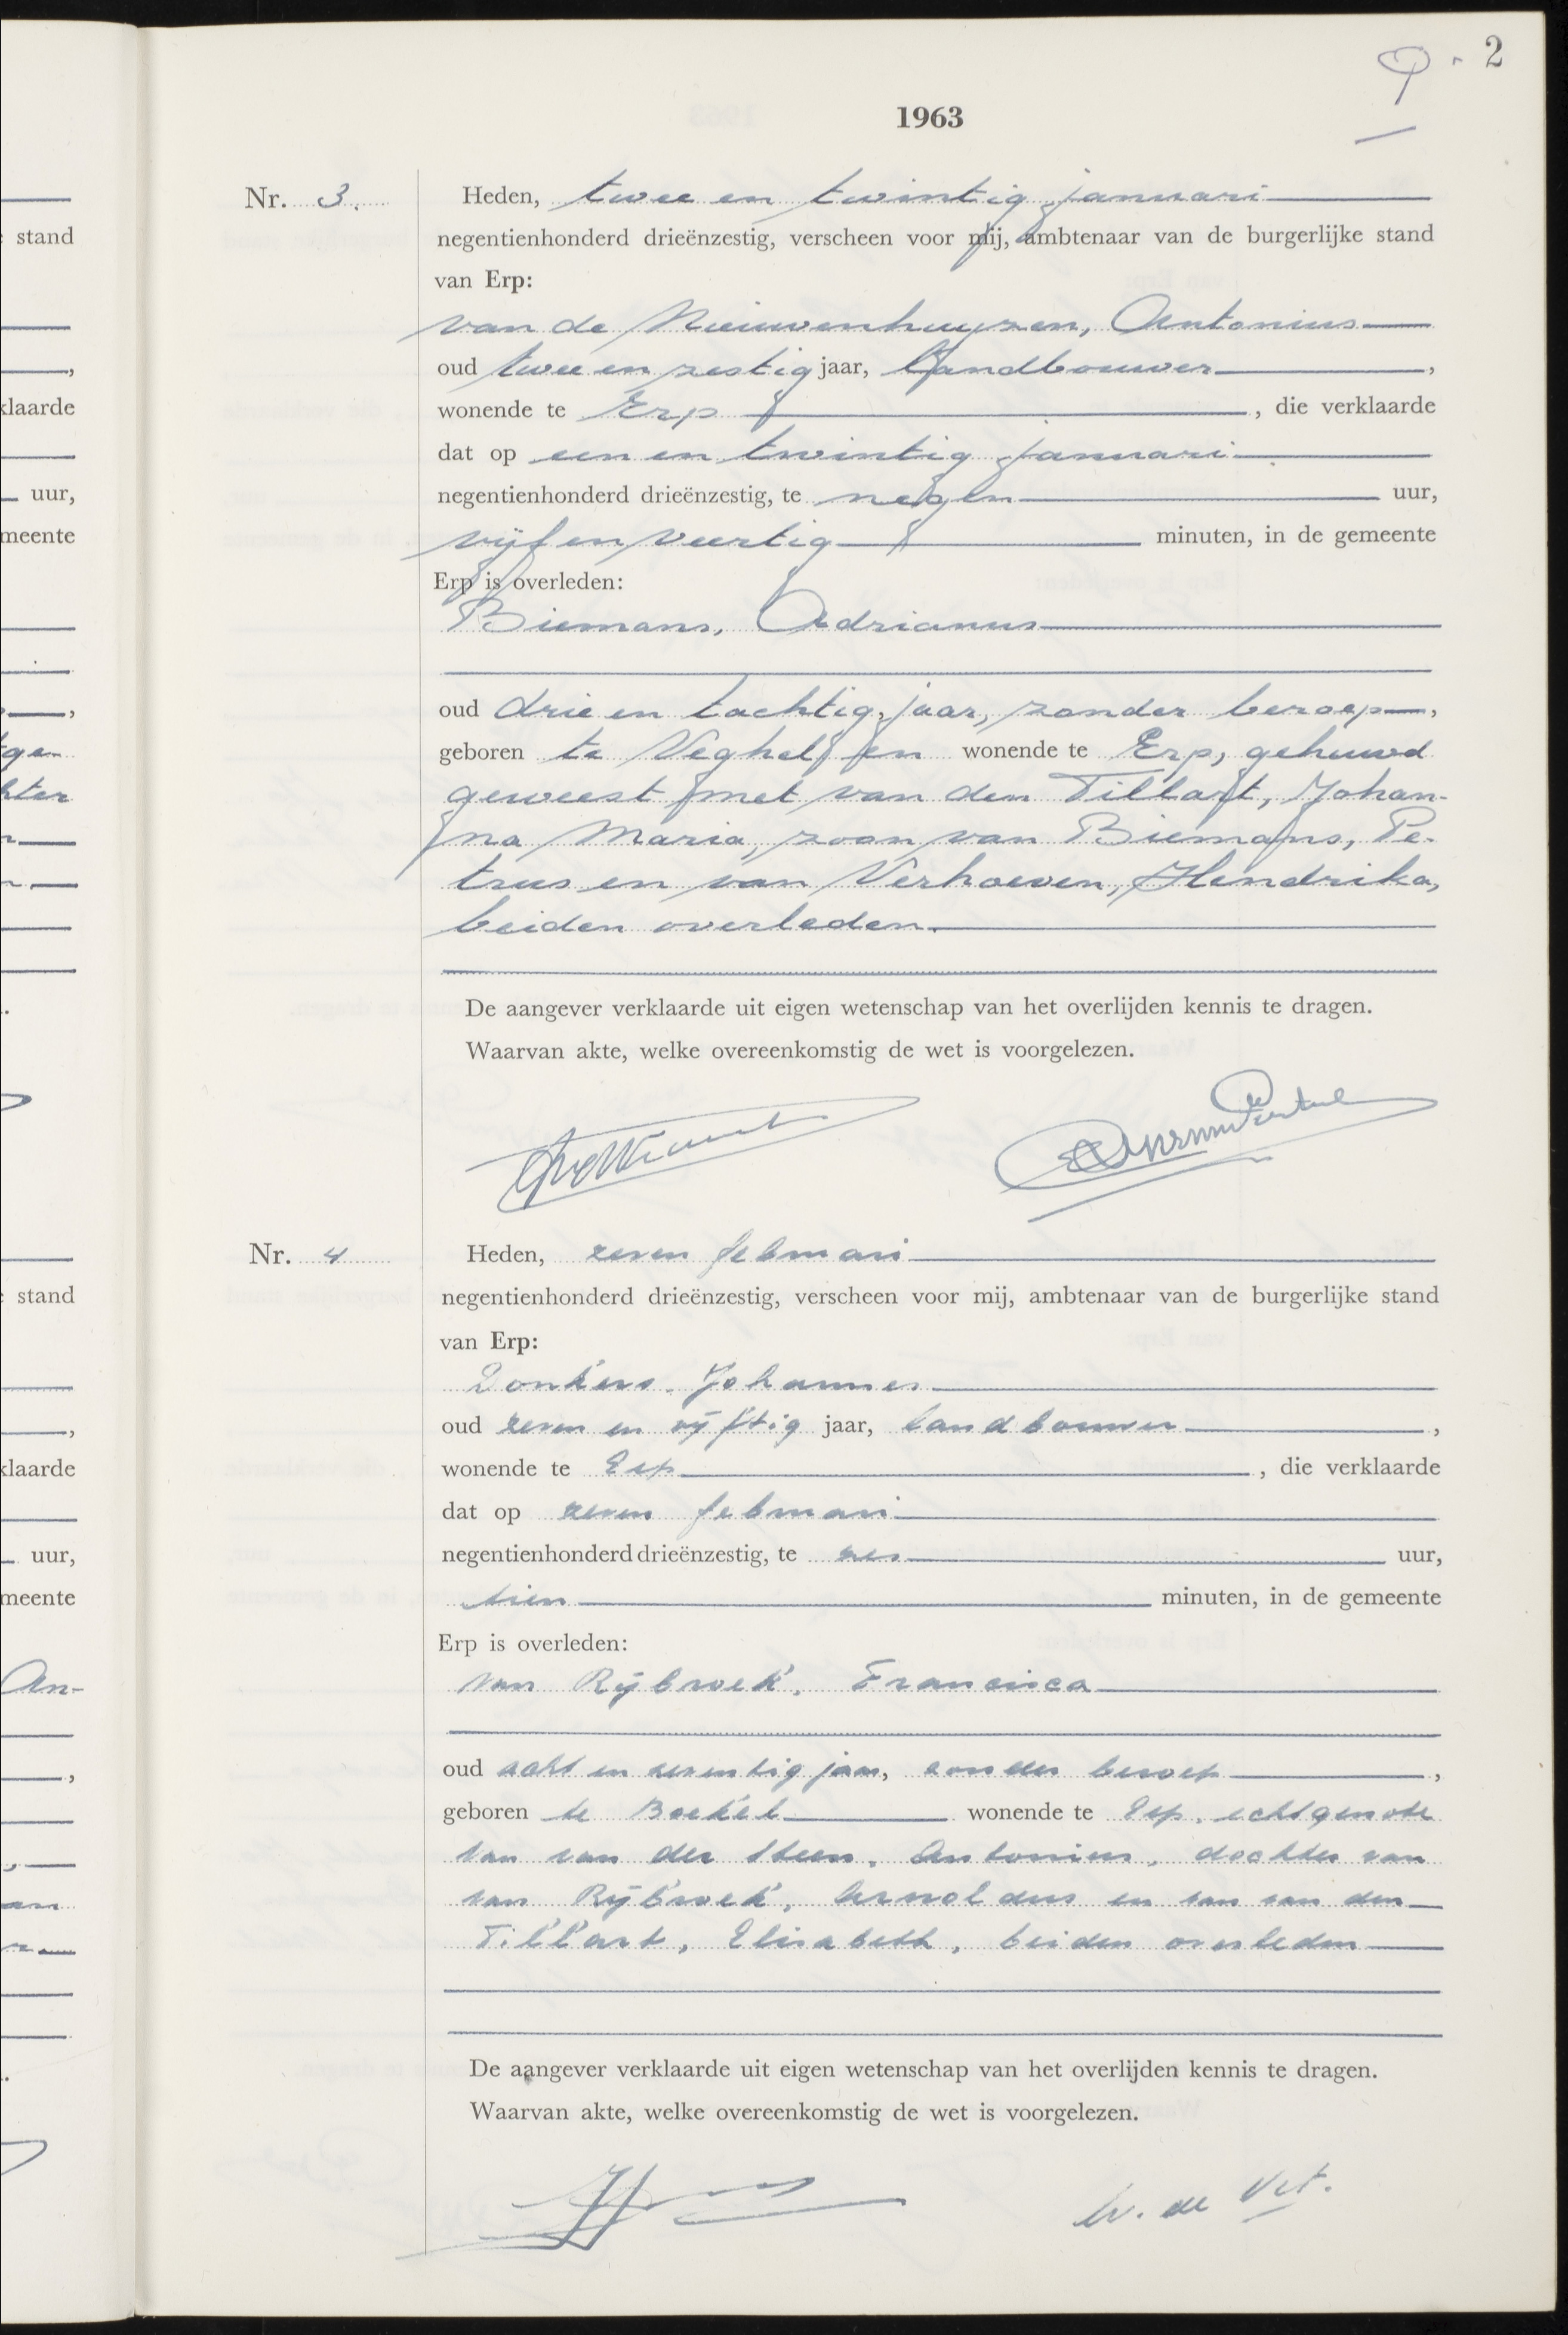 2
1963
Nr. 3.
Heden, twee en twintig januari
negentienhonderd drieënzestig, verscheen voor mij, ambtenaar van de burgerlijke stand
van Erp:
van de Nieuwenhuyzen, Antonius
oud twee en zestig jaar, landbouwer,
wonende te Erp, die verklaarde
dat op een en twintig januari
negentienhonderd drieënzestig, te negen uur,
vijf en veertig minuten, in de gemeente
Erp is overleden:
Biemans, Adrianus
oud drie en tachtig jaar, zonder beroep,
geboren te Veghel en wonende te Erp, gehuwd
geweest met van den Tillart, Johan-
na Maria, zoon van Biemans, Pe-
trus en van Verhoeven, Hendrika,
beiden overleden.
De aangever verklaarde uit eigen wetenschap van het overlijden kennis te dragen.
Waarvan akte, welke overeenkomstig de wet is voorgelezen.
Nr. 4
Heden, zeven februari
negentienhonderd drieënzestig, verscheen voor mij, ambtenaar van de burgerlijke stand
van Erp:
Donkers, Johannes
oud zeven en vijftig jaar, landbouwer,
wonende te Erp, die verklaarde
dat op zeven februari
negentienhonderd drieënzestig, te zes uur,
tien minuten, in de gemeente
Erp is overleden:
van Rijbroek, Francisca
oud acht en zeventig jaar, zonder beroep,
geboren te Boekel wonende te Erp, echtgenote
van van der Steen, Antonius, dochter van
van Rijbroek, Arnoldus en van van den
Tillart, Elisabeth, beiden overleden
De aangever verklaarde uit eigen wetenschap van het overlijden kennis te dragen.
Waarvan akte, welke overeenkomstig de wet is voorgelezen.
W. de Vet.
stand
klaarde
uur,
meente
stand
klaarde
uur,
meente
An-